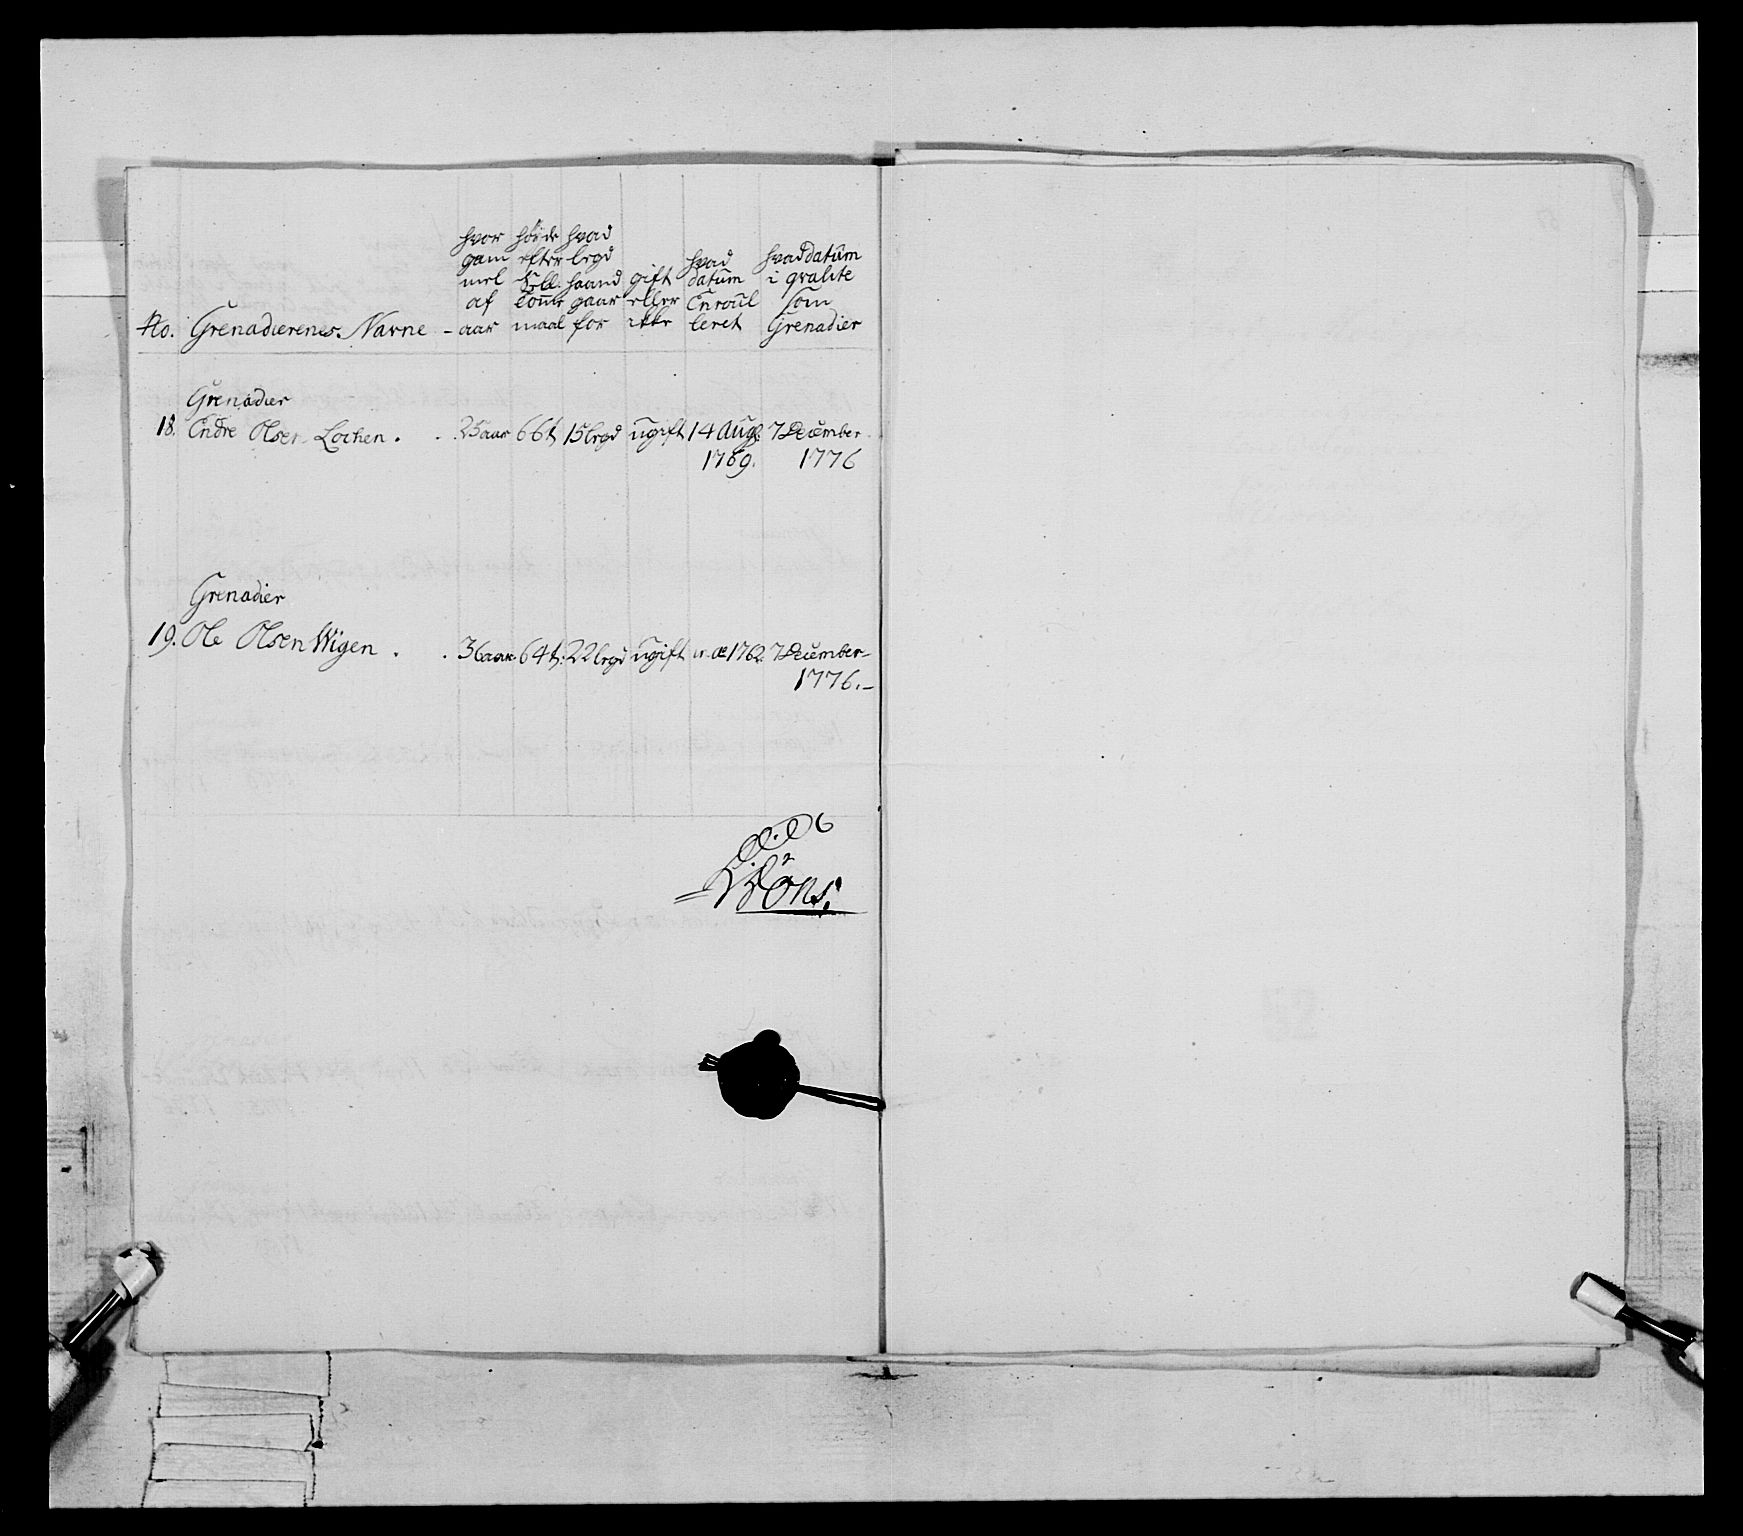 No. Grenadierenes Navne - hvor gammel af aar høide efter Coure maal hvad legd haand gaar for gift eller ikke hvad datum Enroulleret hvad datum i qvalite som Grenadier
Grenadier
18. Endre Olsen Lochen . . 25 aar 66t 15 legd ugift 14 Aug: 7 December
1769. 1776
Grenadier
19. Ole Olsen Wigen . . 36 aar 64t: 22 legd ugift 1762. 7 December
1776.